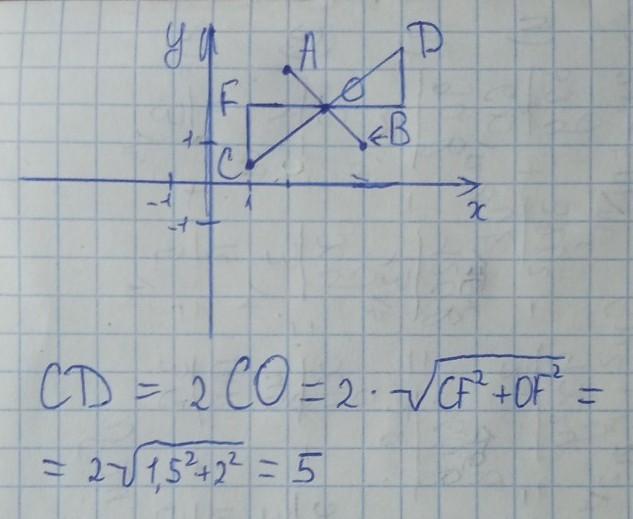 y
A
D
F
O
1
B
C
-1
1
x
-1
CD = 2 CO = 2 · √(CF² + OF²) =
= 2√(1,5² + 2²) = 5